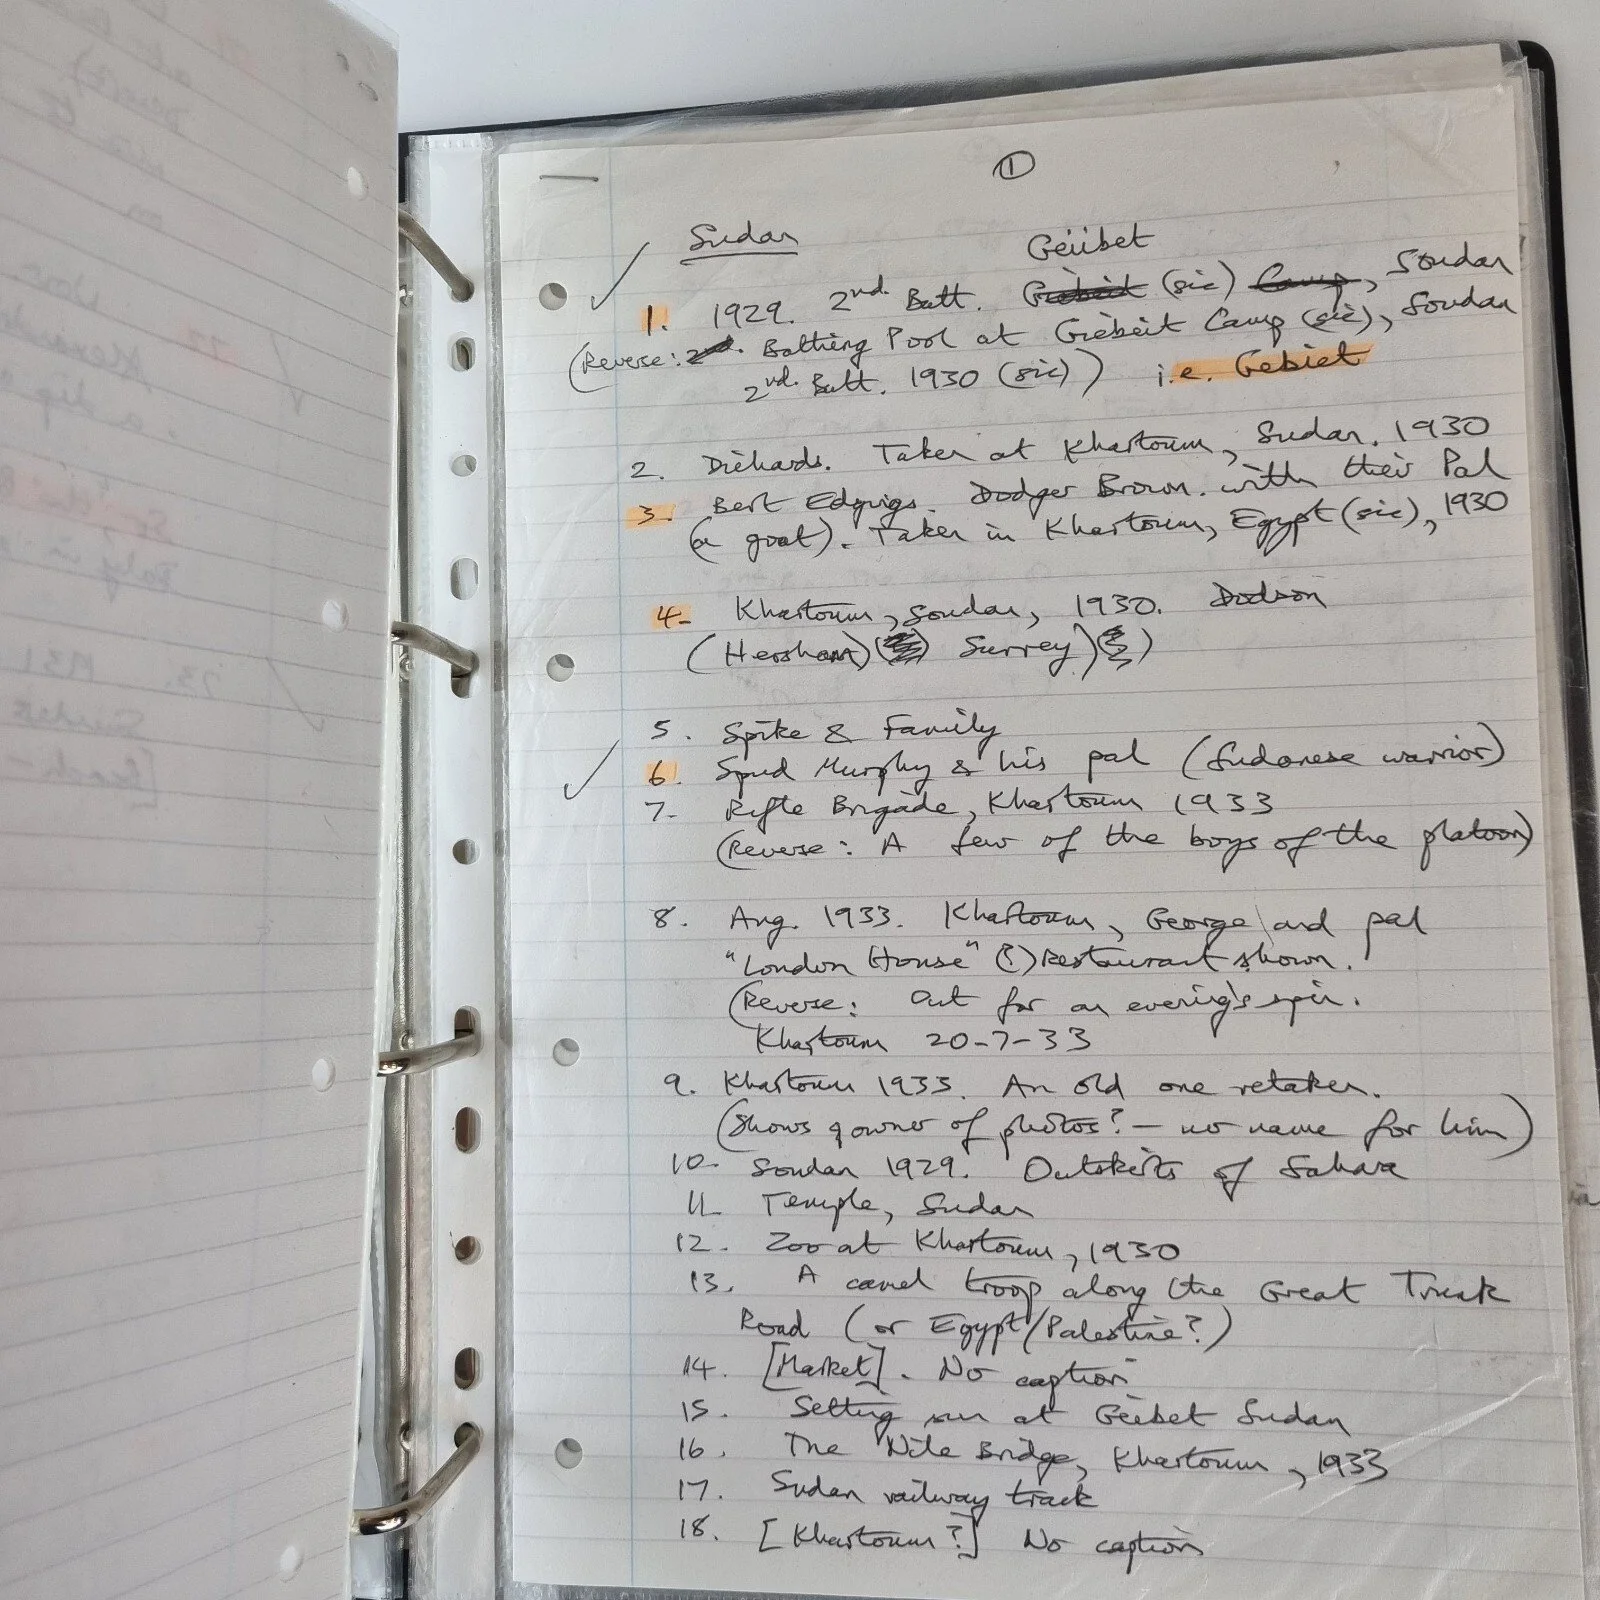 ①
Sudan
Geiibet
1. 1929. 2nd. Batt. (sic) Camp, Soudan
(Reverse: 2nd. Bathing Pool at Giebeit Camp (sic), Soudan
2nd. Batt. 1930 (sic)) i.e. Gebiet
2. Diehards. Taken at Khartoum, Sudan. 1930
3. Bert Edgings. Dodger Brown. with their Pal
(a goat). Taken in Khartoum, Egypt (sic), 1930
4. Khartoum, Soudan, 1930. Dodson
(Hersham) ( Surrey)
5. Spike & Family
6. Spud Murphy & his pal (Sudanese warrior)
7. Rifle Brigade, Khartoum 1933
(Reverse: A few of the boys of the platoon)
8. Aug. 1933. Khartoum, George and pal
"London House" (?) Restaurant shown.
(Reverse: Out for an evening's spin.
Khartoum 20-7-33
9. Khartoum 1933. An old one retaken.
(Shows owner of photos? - no name for him)
10. Soudan 1929. Outskirts of Sahara
11. Temple, Sudan
12. Zoo at Khartoum, 1930
13. A camel troop along the Great Trunk
Road (or Egypt/Palestine?)
14. [Market]. No caption
15. Setting sun at Geibet Sudan
16. The Nile Bridge, Khartoum, 1933
17. Sudan railway track
18. [Khartoum?] No caption